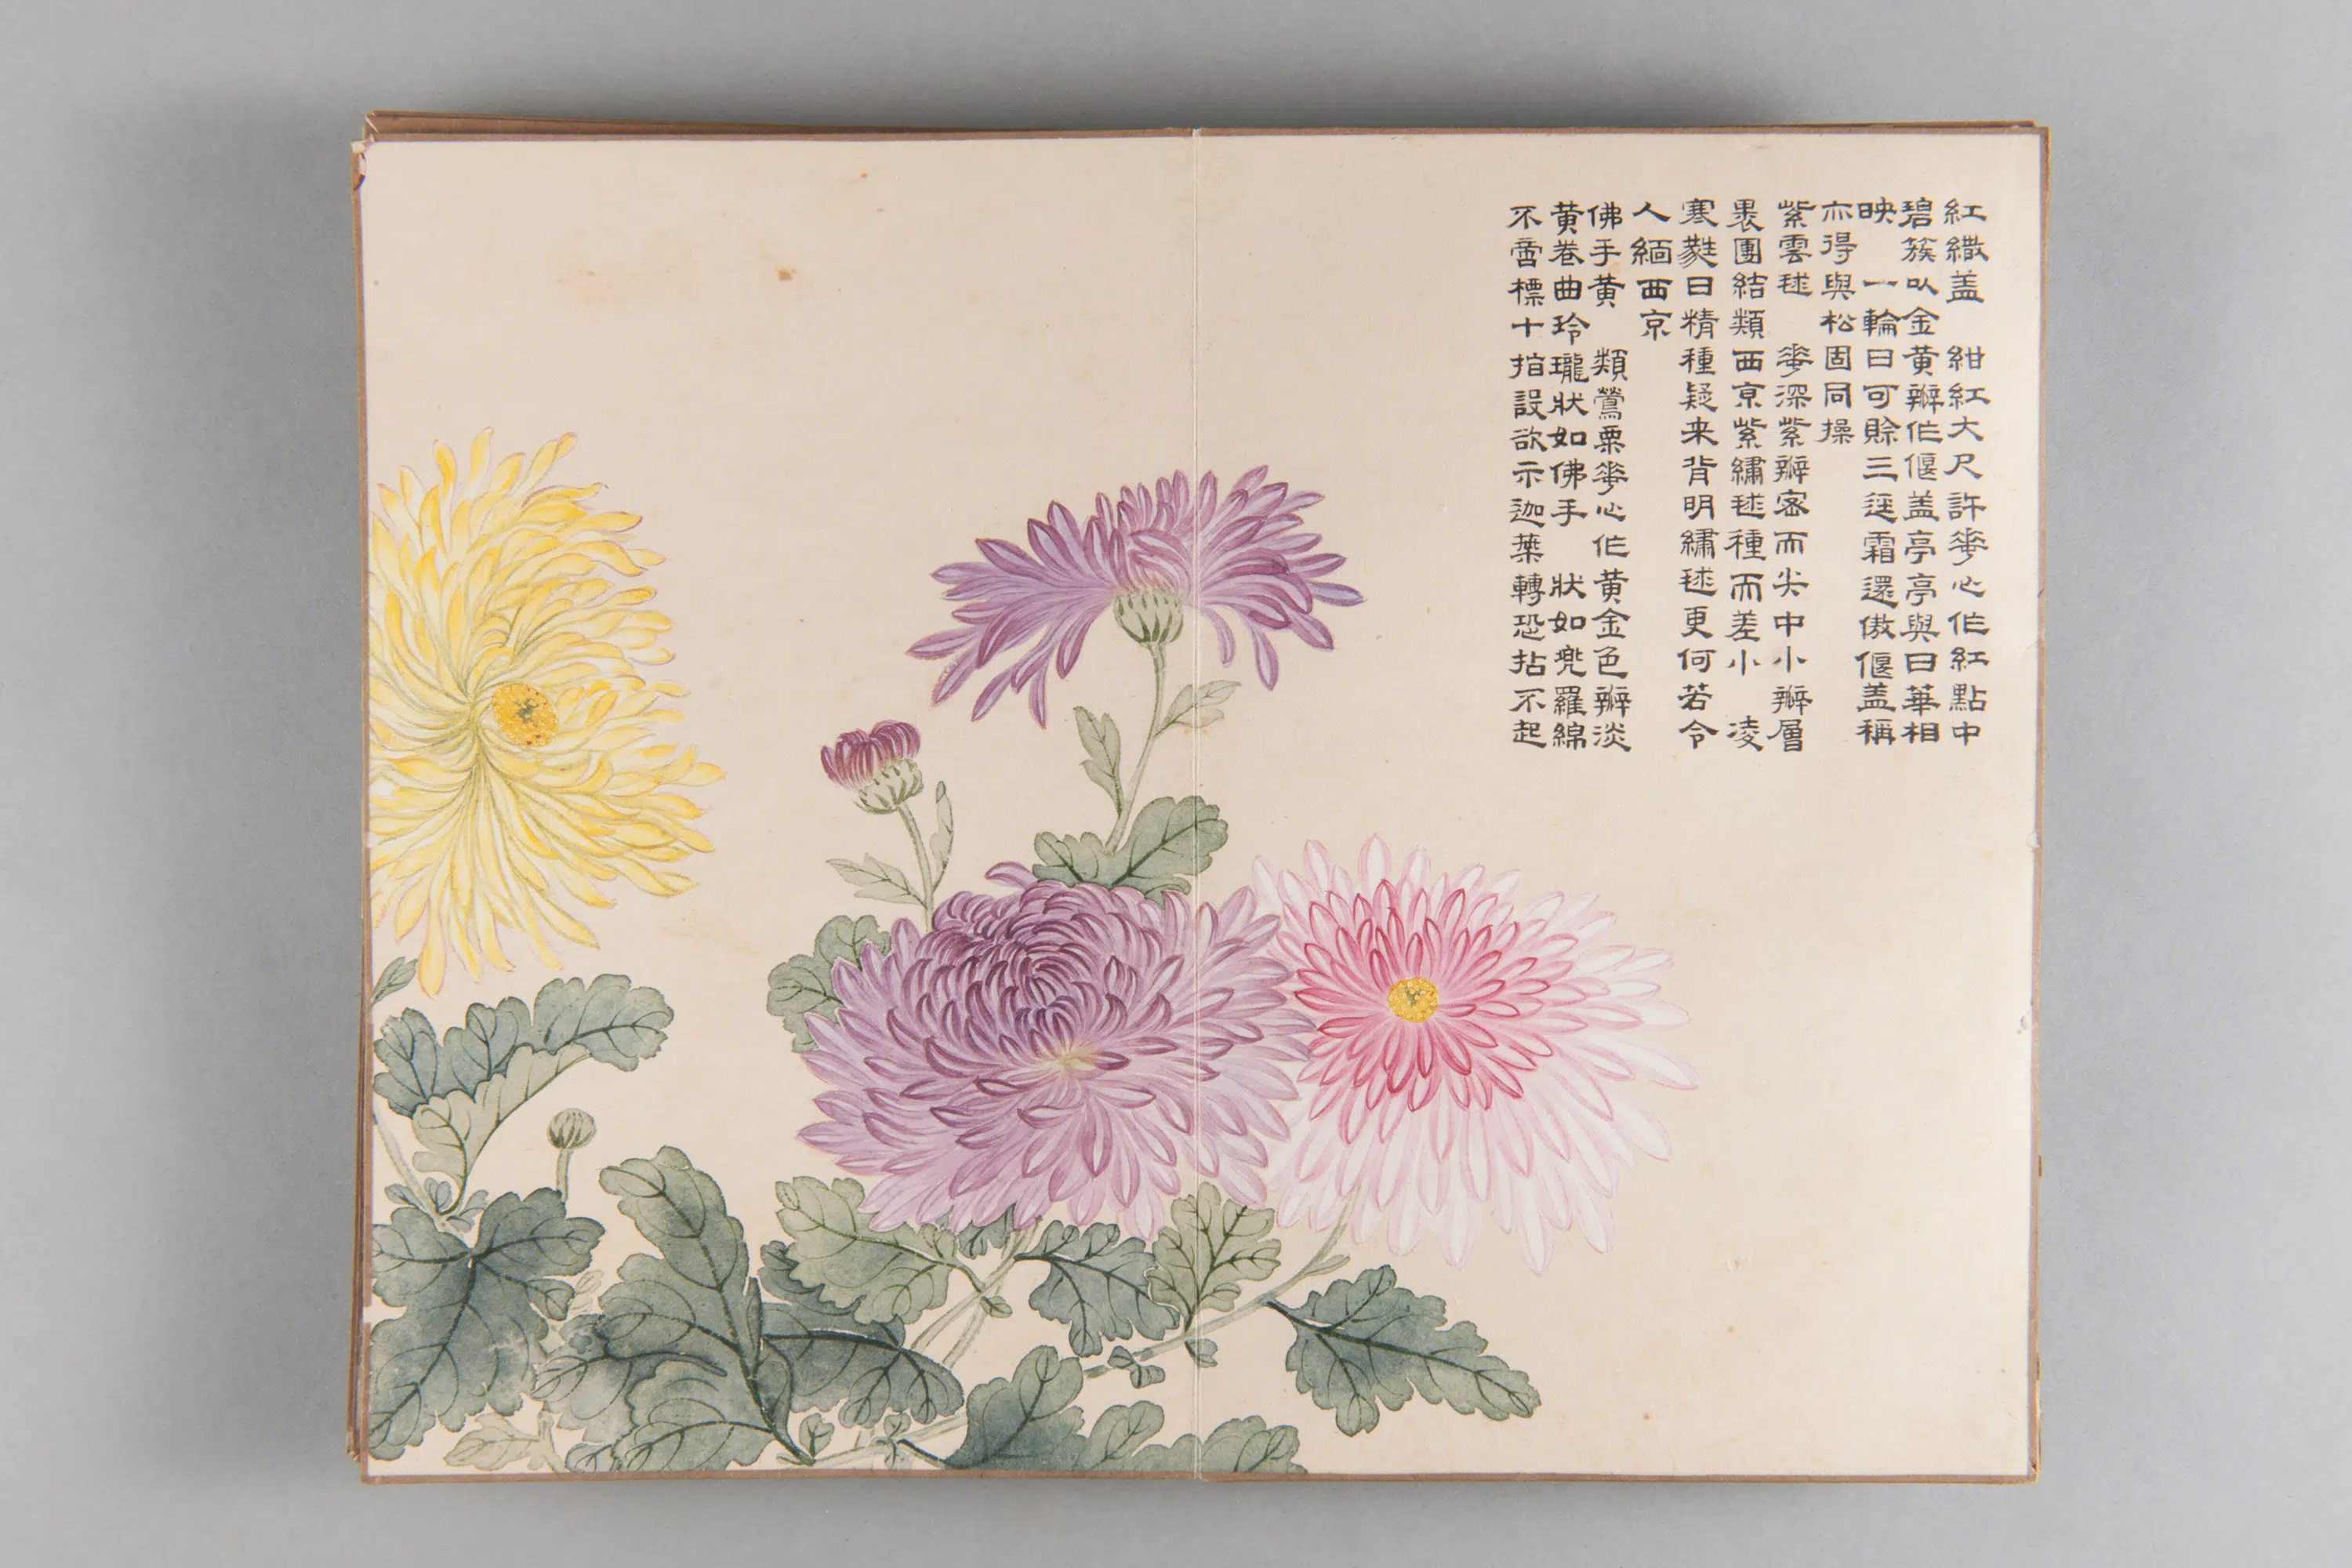 紅繖盖 紺紅大尺許華心作紅點中
碧簇以金黄瓣作偃盖亭亭與日華相
映 一輪日可賒三逕霜還傲偃盖稱
亦得與松固同操
紫雲毬 華深紫瓣密而尖中小瓣層
褁團結類西京紫繡毬種而差小 凌
寒蕤日精種疑来背明繡毬更何若令
人緬西京
佛手黄 類鶯粟華心作黄金色瓣淡
黄卷曲玲瓏狀如佛手 狀如兜羅綿
不啻標十指設欲示迦葉轉恐拈不起